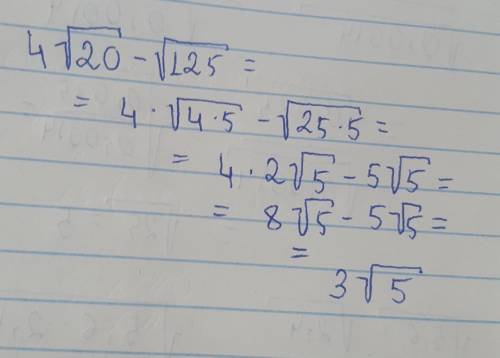 4√20 - √125 =
= 4 · √4·5 - √25·5 =
= 4 · 2√5 - 5√5 =
= 8√5 - 5√5 =
=
3√5